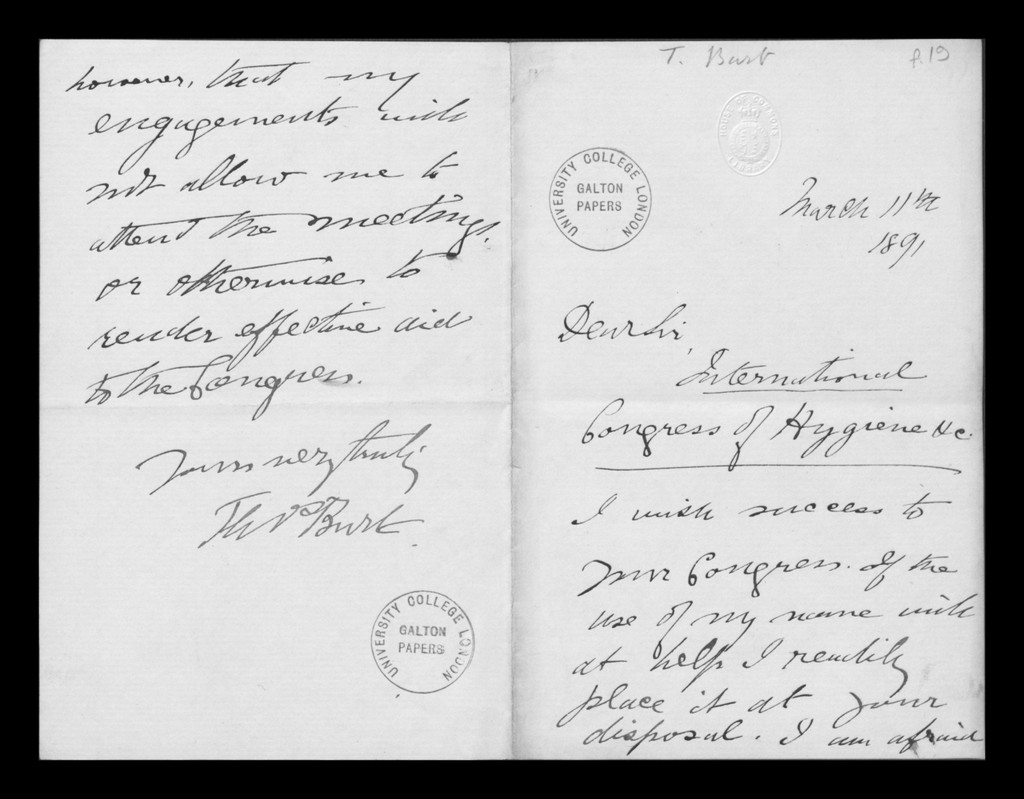 T. Burt
f.19
HOUSE OF COMMONS
LONDON
UNIVERSITY COLLEGE LONDON
GALTON
PAPERS
March 11th
1891
Dear Sir,
International
Congress of Hygiene &c.
I wish success to
your Congress. If the
use of my name will
at help I readily
place it at your
disposal. I am afraid
however, that my
engagements will
not allow me to
attend the meetings,
or otherwise to
render effective aid
to the Congress.
Yours very truly
Thos Burt.
UNIVERSITY COLLEGE LONDON
GALTON
PAPERS